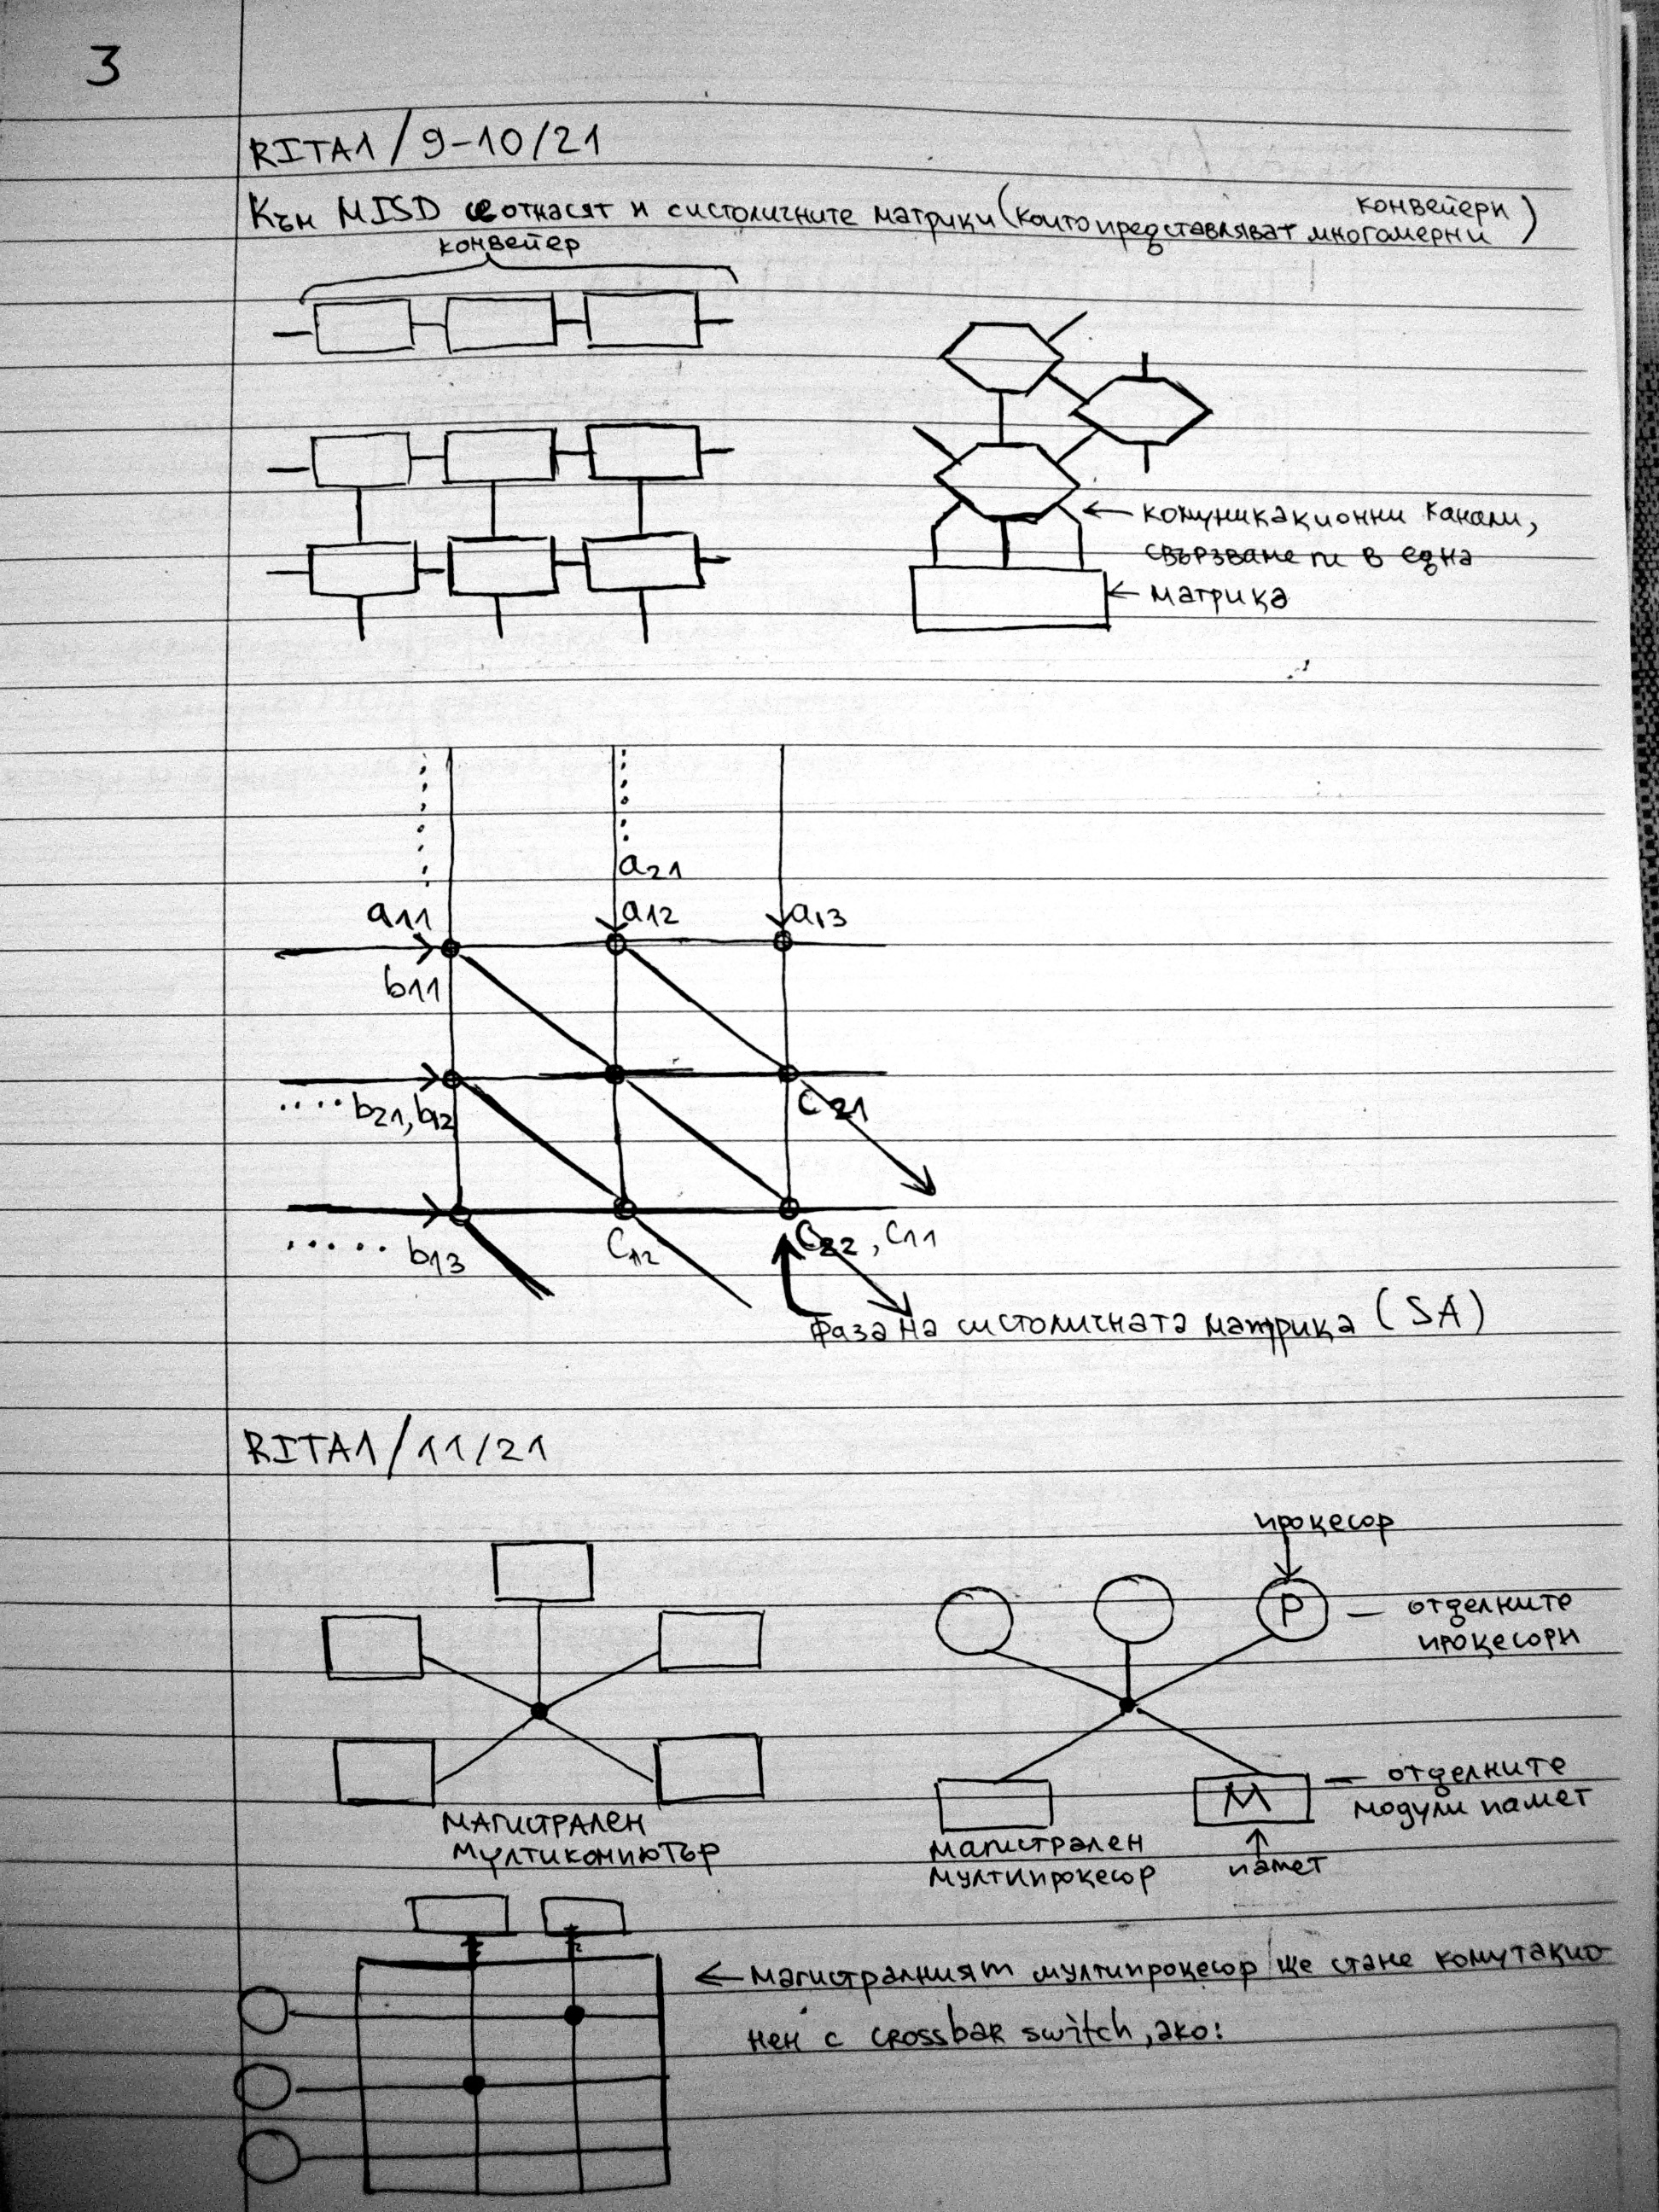 3
RITA1/9-10/21
Към MISD се отнасят и систоличните матрици (които представляват многомерни конвейери)
конвейер
комуникационни канали,
свързване ги в една
матрица
a21
a11 a12 a13
b11
.... b21, b12 c21
..... b13 c12 c22, c11
фаза на систоличната матрица (SA)
RITA1/11/21
процесор
P — отделните
процесори
M — отделните
модули памет
МАГИСТРАЛЕН
мултикомпютър
магистрален
мултипроцесор
памет
← магистралният мултипроцесор ще стане комутацио-
нен с crossbar switch, ако: